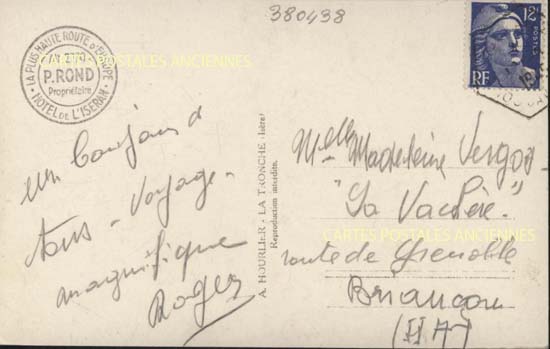 380438
12F
POSTES
RF
LA PLUS HAUTE ROUTE D'EUROPE
P. ROND
Propriétaire
HOTEL DE L'ISERAN
CARTES POSTALES ANCIENNES
un bonjour à
tous - Voyage
magnifique
Roger
A. HOURLIER - LA TRONCHE (Isère)
Reproduction interdite.
Melle Madeleine
"La Vachère"
CARTES POSTALES ANCIENNES
route de Grenoble
Briançon
(HA)